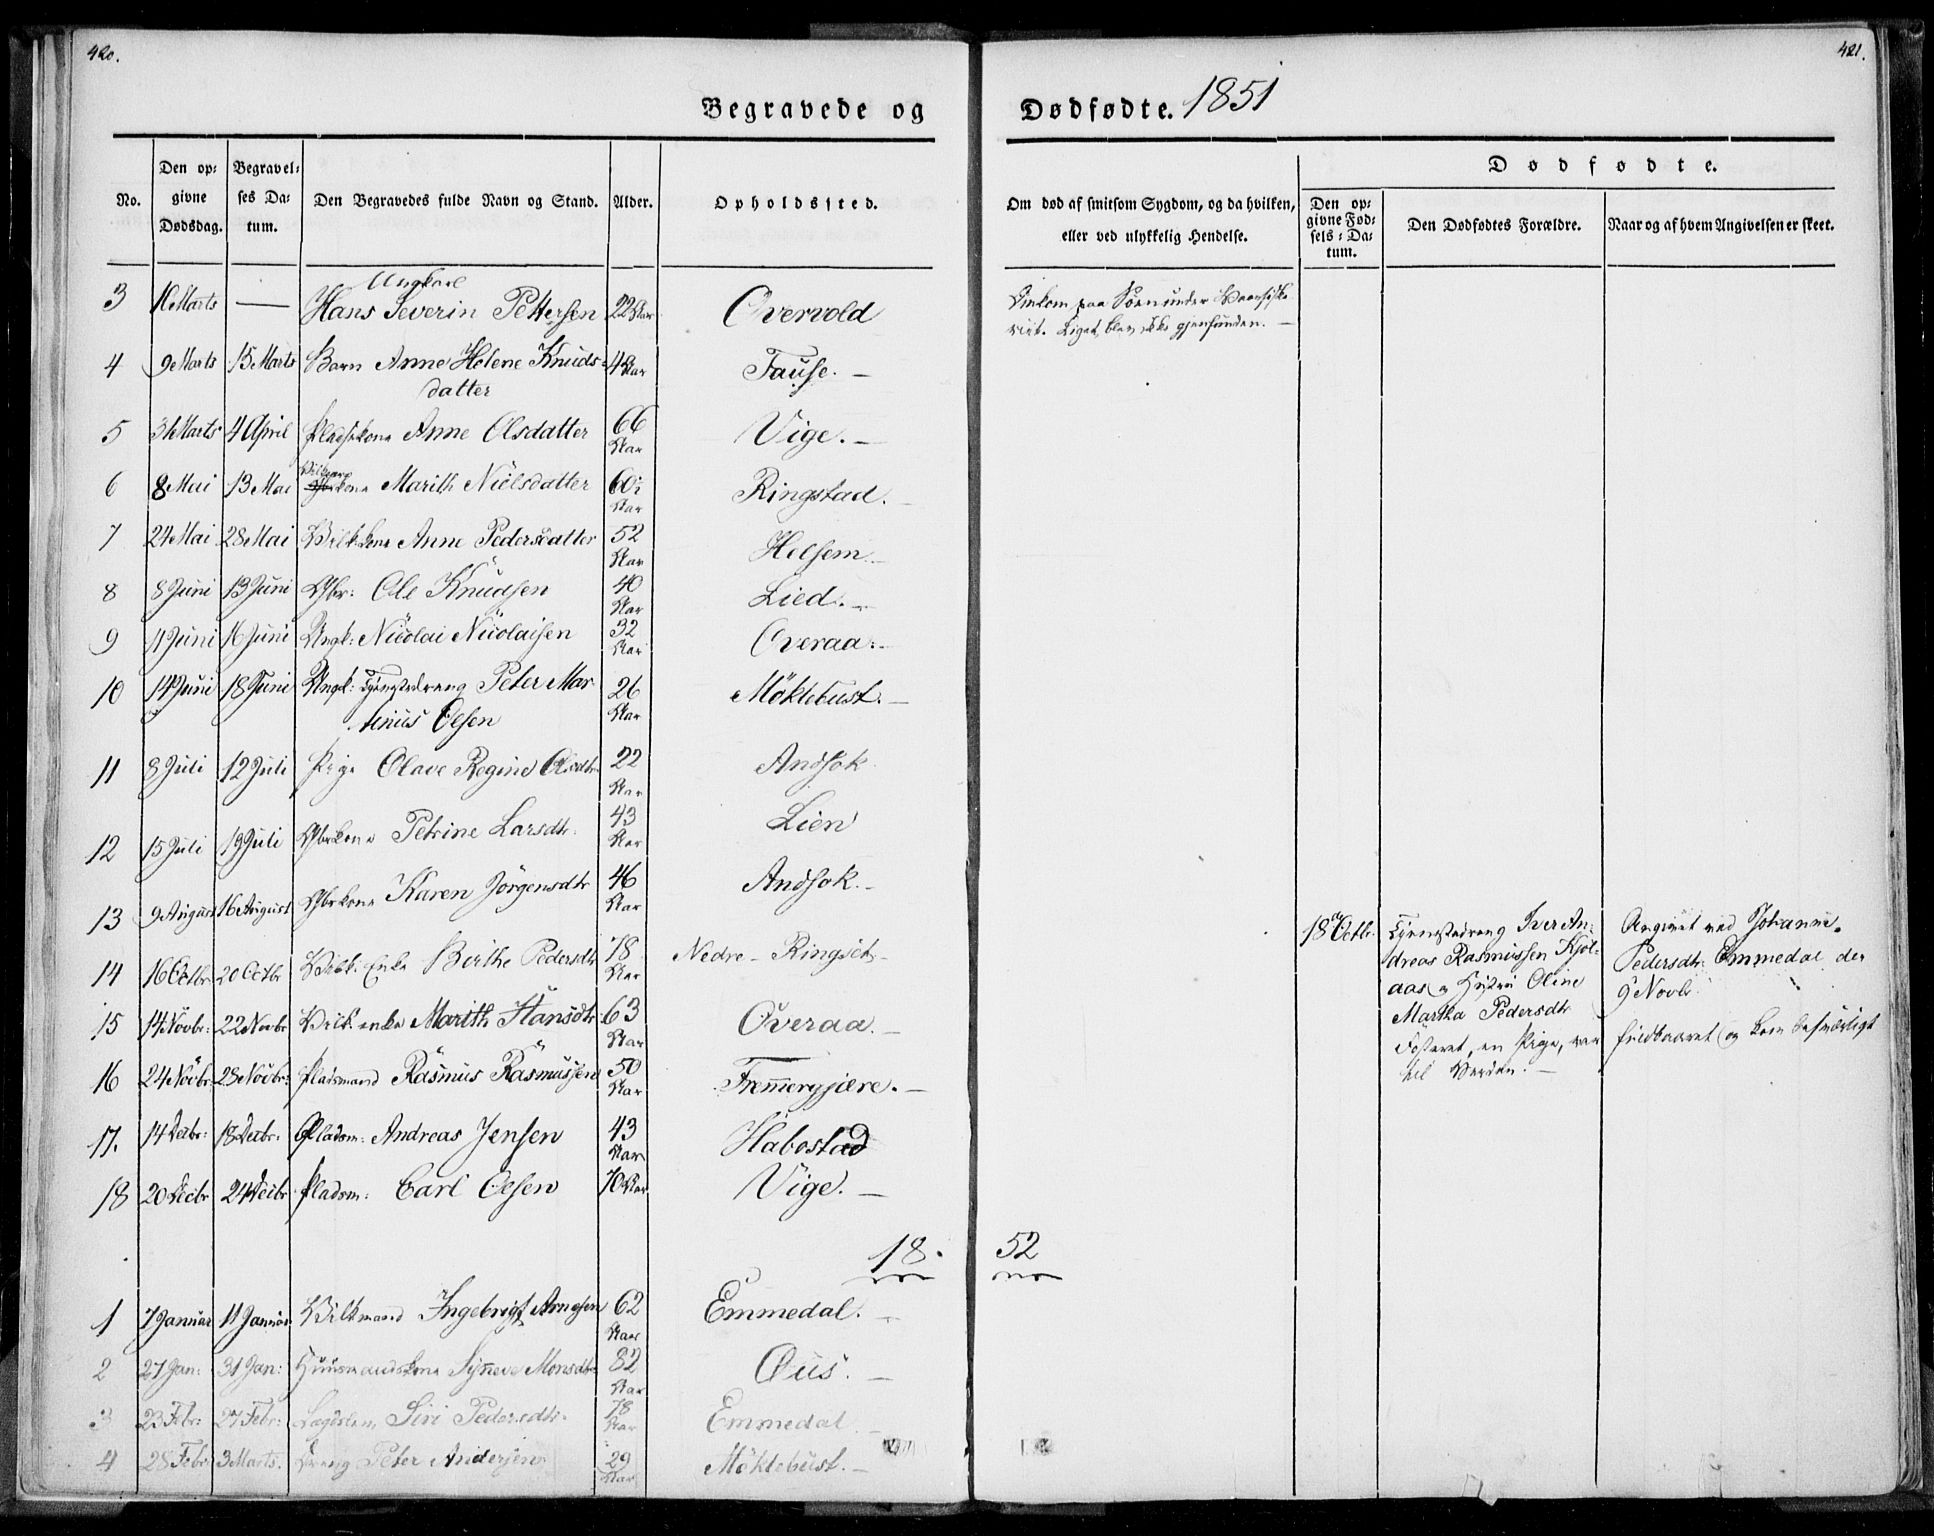 420.
421.
Begravede og Dødfødte. 1851
No.
Den op-
givne
Dødsdag.
Begravel-
ses Da-
tum.
Den Begravedes fulde Navn og Stand.
Alder.
Opholdssted.
Om død af smitsom Sygdom, og da hvilken,
eller ved ulykkelig Hendelse.
Dødfødte.
Den op-
givne Fød-
sels-Da-
tum.
Den Dødfødtes Forældre.
Naar og af hvem Angivelsen er skeet.
Ungkarl
3 10 Marts — Hans Severin Pettersen 22 Aar Overvold
Omkom paa Søen under
Liget blev ikke gjenfunden. —
4 9 Marts 15 Marts Barn Anne Helene Knuds- 4 Aar Tause. —
datter
5 31 Marts 4 April Pladskone Anne Olsdatter 66 Aar Vige. —
6 8 Mai 13 Mai Marith Nielsdatter 60 Aar Ringstad. —
7 24 Mai 28 Mai Vilk.kone Anne Pedersdatter 52 Aar Helsem. —
8 8 Juni 13 Juni Gbr: Ole Knudsen 40 Aar Lied. —
9 11 Juni 16 Juni Ungk: Nicolai Nicolaisen 32 Aar Overaa. —
10 14 Juni 18 Juni Ungk: Tjenestedreng Peter Mar- 26 Aar Möklebust. —
tinus Olsen
11 8 Juli 12 Juli Pige Olave Regine Olsdtr 22 Aar Andsok
12 15 Juli 19 Juli Gbrkone Petrine Larsdtr: 43 Aar Lien
13 9 August 16 August Gbrkone Karen Jörgensdtr 46 Aar Andsok. —
14 16 Octbr 20 Octbr Vilk. Enke Berthe Pedersdtr 78 Aar Nedre-Ringset. —
15 14 Novbr: 22 Novbr Vilk enke Marith Hansdtr: 63 Aar Overaa. —
16 24 Novbr: 28 Novbr: Pladsmand Rasmus Rasmussen 50 Aar Fremergjære. —
17. 14 Decbr: 18 Decbr: Pladsm: Andreas Jensen 43 Aar Habostad
18 20 Decbr 24 Decbr Pladsm: Carl Olsen 70 Aar Vige. —
18 Octbr.
Tjenestedreng Iver An-
dreas Rasmussen Kjöl-
aas og Hustru Oline
Martha Pedersdtr
Fosteret, en Pige, var
til Verden. —
Angivet ved Johanne
Pedersdtr: Emmedal den
9 Novbr.
fuldbaaret og kom besværligt
18. 52
1 7 Januar 11 Januar Vilkmand Ingebrigt Arnesen 62 Aar Emmedal. —
2 27 Jan: 31 Jan: Huusmandskone Synneve Monsdtr 82 Aar Øus. —
3 23 Febr: 27 Febr: Lægdslem Siri Pedersdtr. 78 Aar Emmedal —
4 28 Febr 3 Marts. Dreng Peter Andersen 29 Aar Möklebust. —